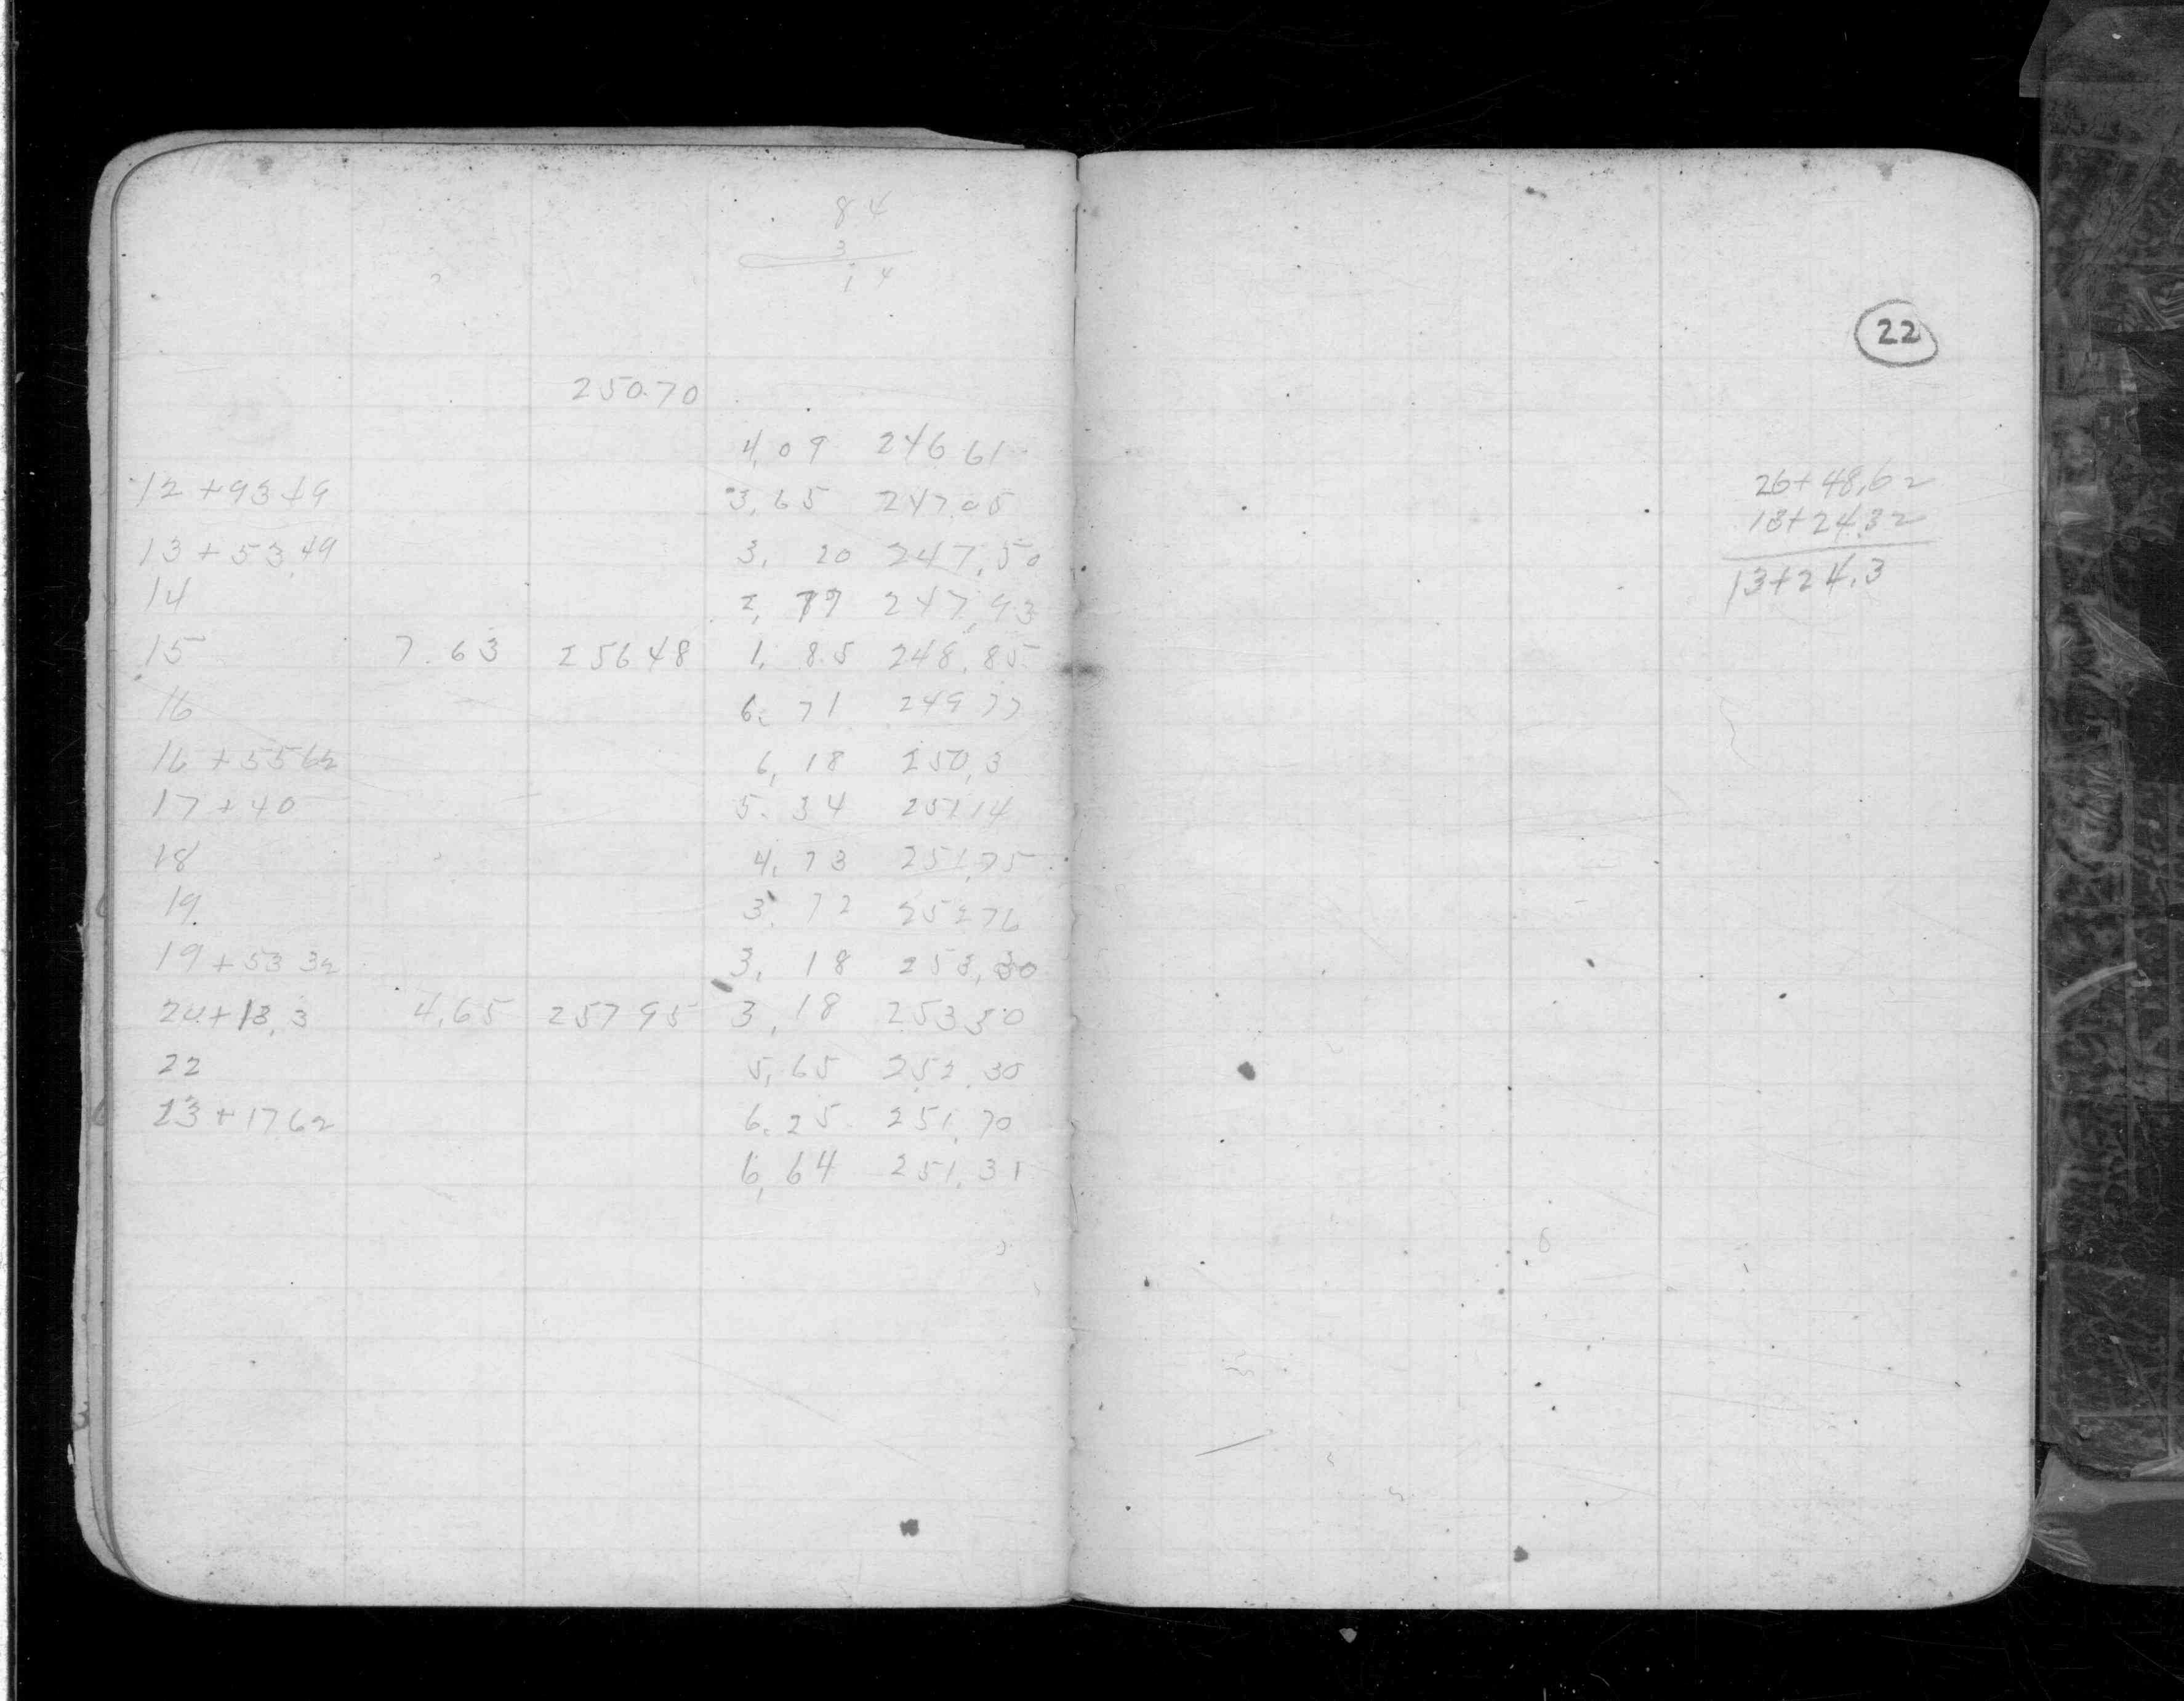 84
3
14
250.70
4,09 246 61
12 +93 19 3,65 247.05
13 + 53.49 3, 20 247,50
14 2, 77 247,93
15 7.63 25648 1, 85 248.85
16 6. 71 249 77
16 + 5562 6, 18 250,3
17 + 40 5. 34 251 14
18 4, 73 251,75
19. 3. 72 252 76
19 + 53 32 3, 18 253,30
20+13,3 4,65 257 95 3, 18 253 30
22 5, 65 252.30
23 + 17 62 6.25 251,70
6, 64 251,31
22
26+48,62
13+24.32
13+24.3